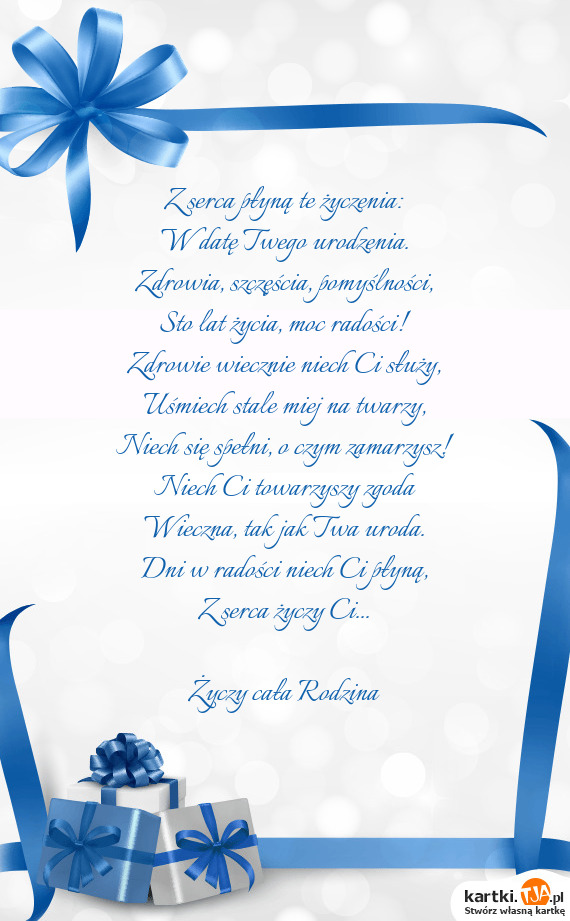 Z serca płyną te życzenia:
W datę Twego urodzenia.
Zdrowia, szczęścia, pomyślności,
Sto lat życia, moc radości!
Zdrowie wiecznie niech Ci służy,
Uśmiech stale miej na twarzy,
Niech się spełni, o czym zamarzysz!
Niech Ci towarzyszy zgoda
Wieczna, tak jak Twa uroda.
Dni w radości niech Ci płyną,
Z serca życzy Ci...
Życzy cała Rodzina
kartki.TJA.pl
Stwórz własną kartkę